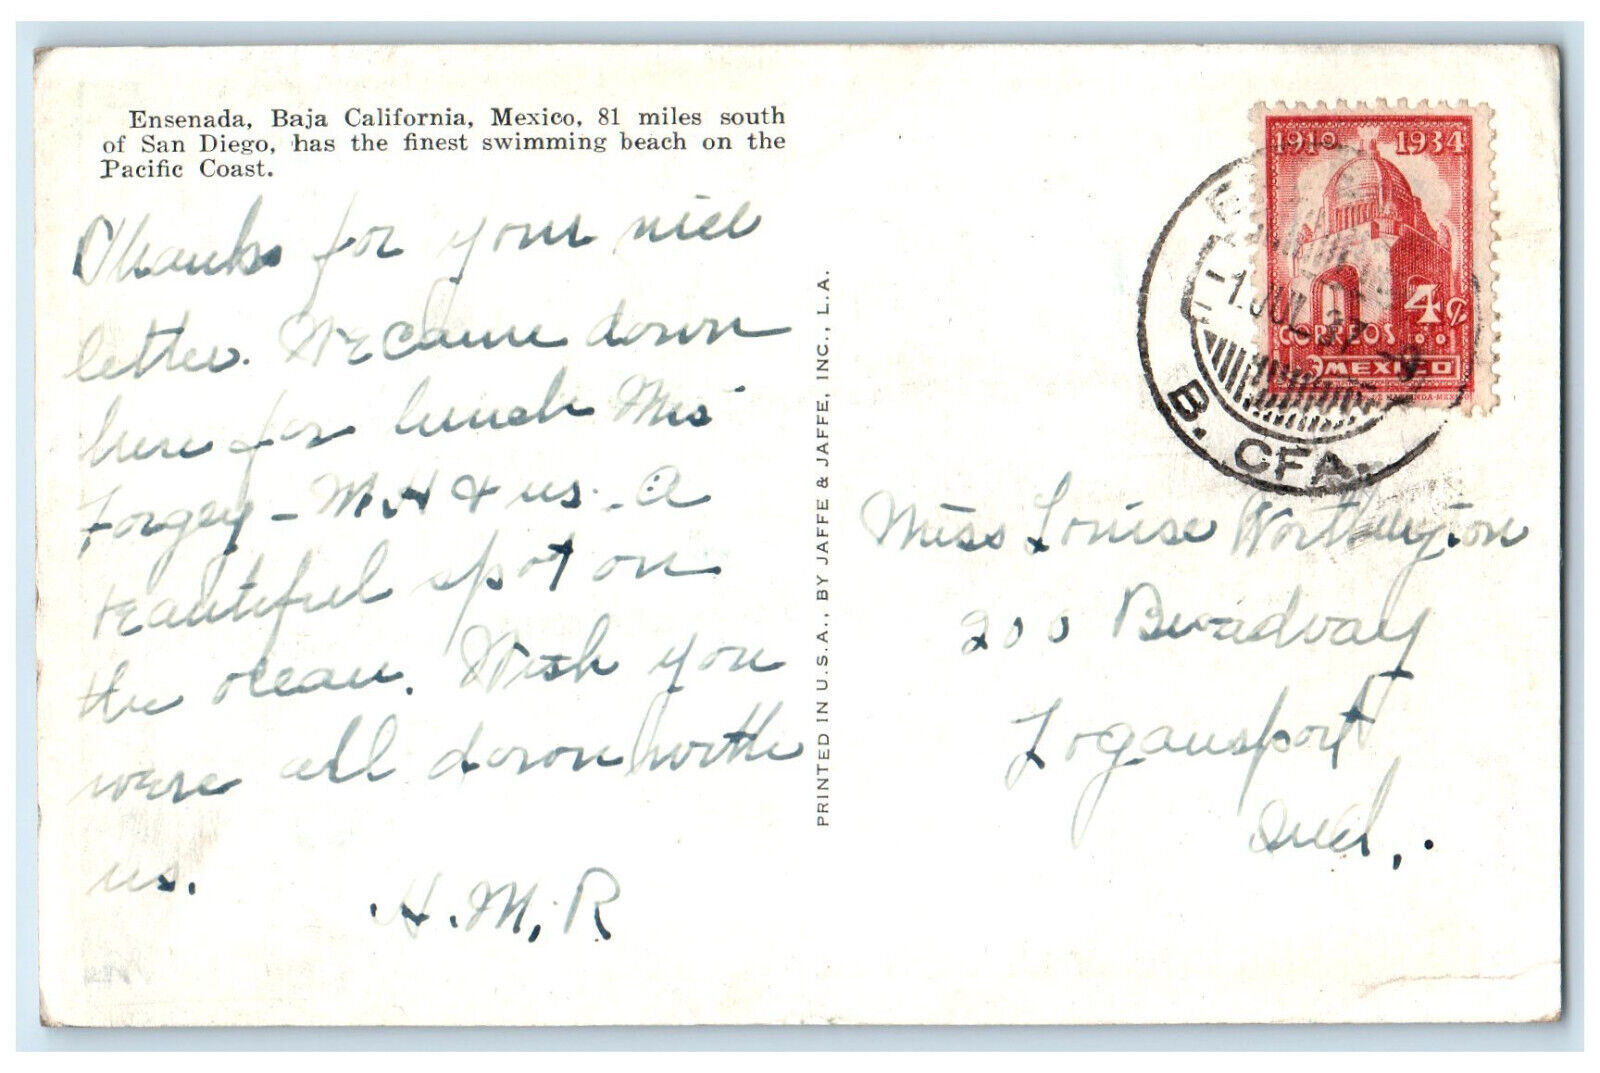 Ensenada, Baja California, Mexico, 81 miles south
of San Diego, has the finest swimming beach on the
Pacific Coast.
Thanks for your nice
letter. We came down
here for lunch Mrs
Forgey - M. H & us. A
beautiful spot on
the ocean. Wish you
were all down with
us.
H. M. R
PRINTED IN U.S.A., BY JAFFE & JAFFE, INC., L.A.
1910 1934
4¢
CORREOS
MEXICO
1 JUL 37
B. CFA.
Miss Louise Worthington
200 Broadway
Logansport
Ind.